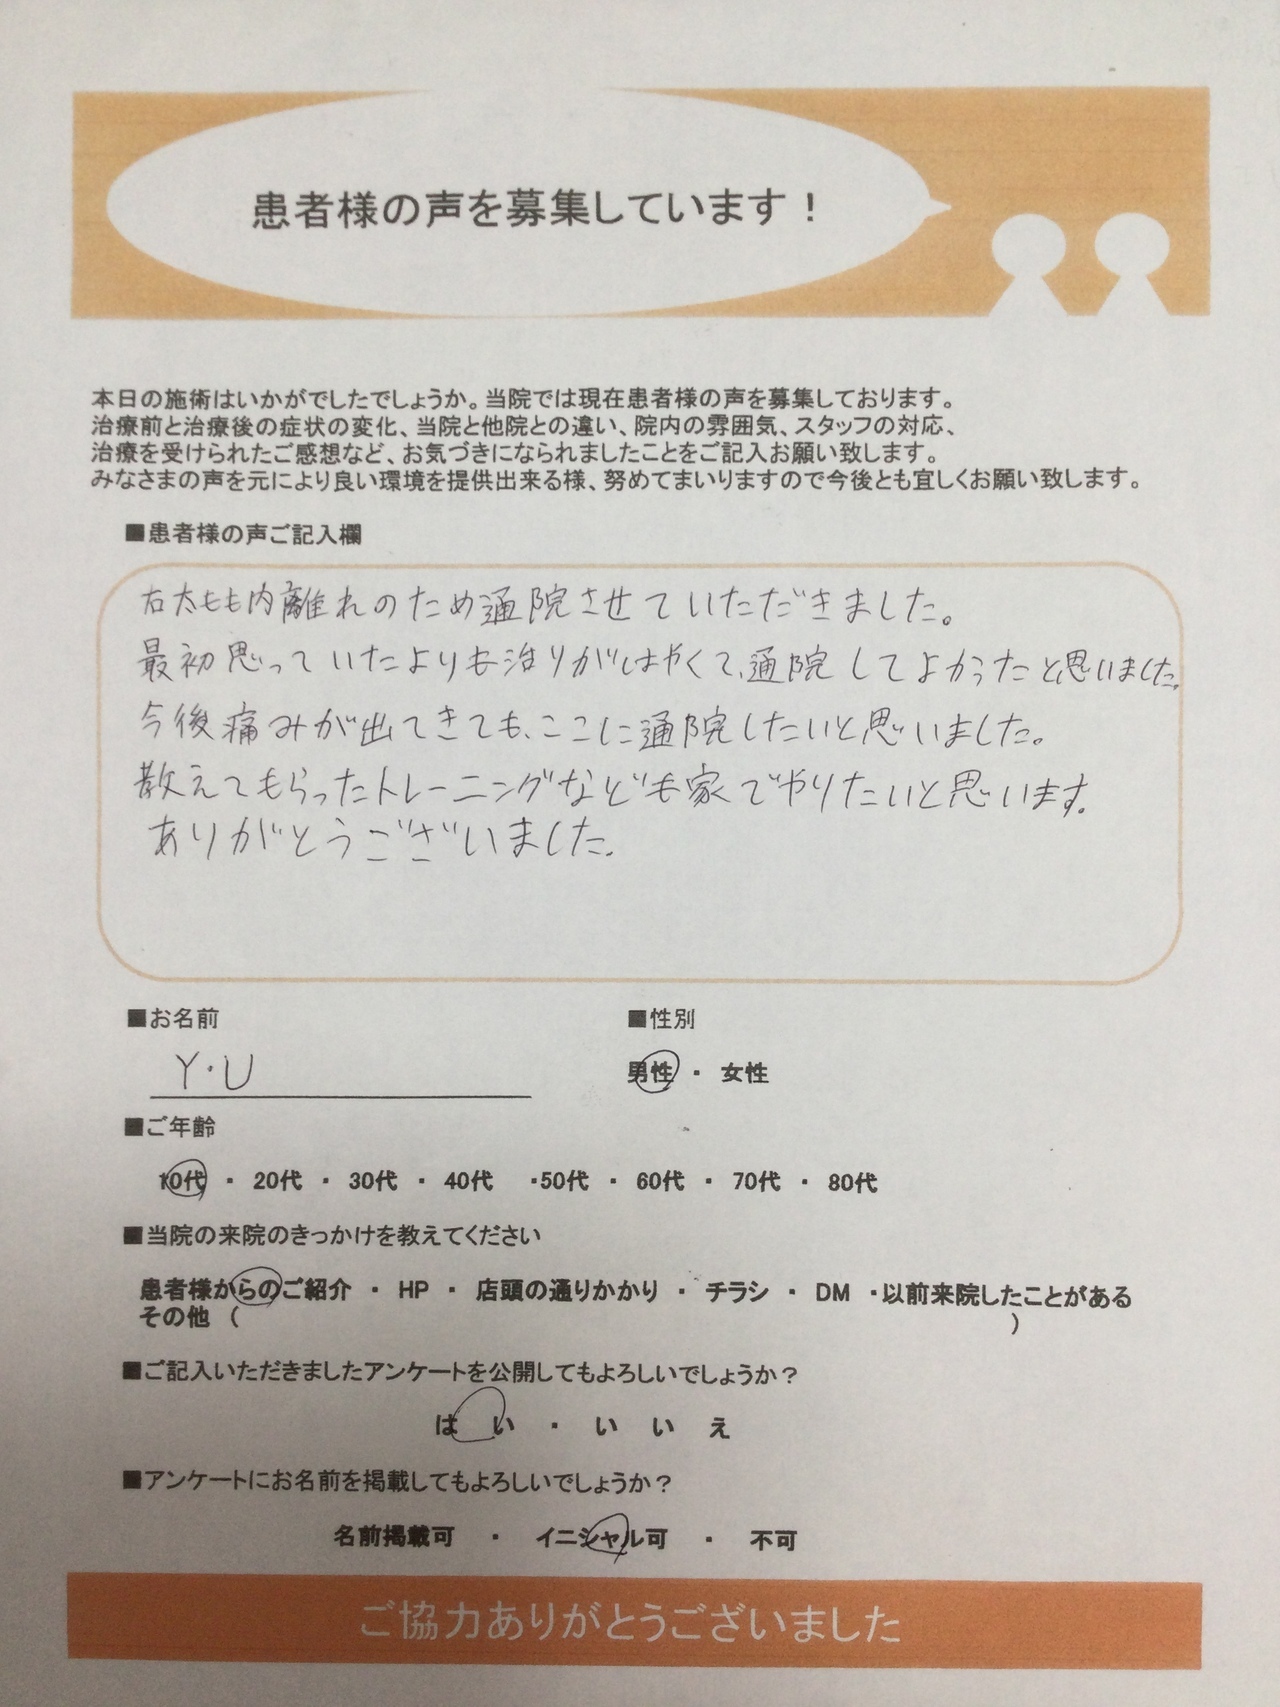 患者様の声を募集しています！
本日の施術はいかがでしたでしょうか。当院では現在患者様の声を募集しております。
治療前と治療後の症状の変化、当院と他院との違い、院内の雰囲気、スタッフの対応、
治療を受けられたご感想など、お気づきになられましたことをご記入お願い致します。
みなさまの声を元により良い環境を提供出来る様、努めてまいりますので今後とも宜しくお願い致します。
■患者様の声ご記入欄
右太もも内離れのため通院させていただきました。
最初思っていたよりも治りがはやくて、通院してよかったと思いました。
今後痛みが出てきても、ここに通院したいと思いました。
教えてもらったトレーニングなども家でやりたいと思います。
ありがとうございました。
■お名前 ■性別
Y・U 男性 ・ 女性
■ご年齢
10代 ・ 20代 ・ 30代 ・ 40代 ・50代 ・ 60代 ・ 70代 ・ 80代
■当院の来院のきっかけを教えてください
患者様からのご紹介 ・ HP ・ 店頭の通りかかり ・ チラシ ・ DM ・以前来院したことがある
その他 （ ）
■ご記入いただきましたアンケートを公開してもよろしいでしょうか？
はい ・ いいえ
■アンケートにお名前を掲載してもよろしいでしょうか？
名前掲載可 ・ イニシャル可 ・ 不可
ご協力ありがとうございました